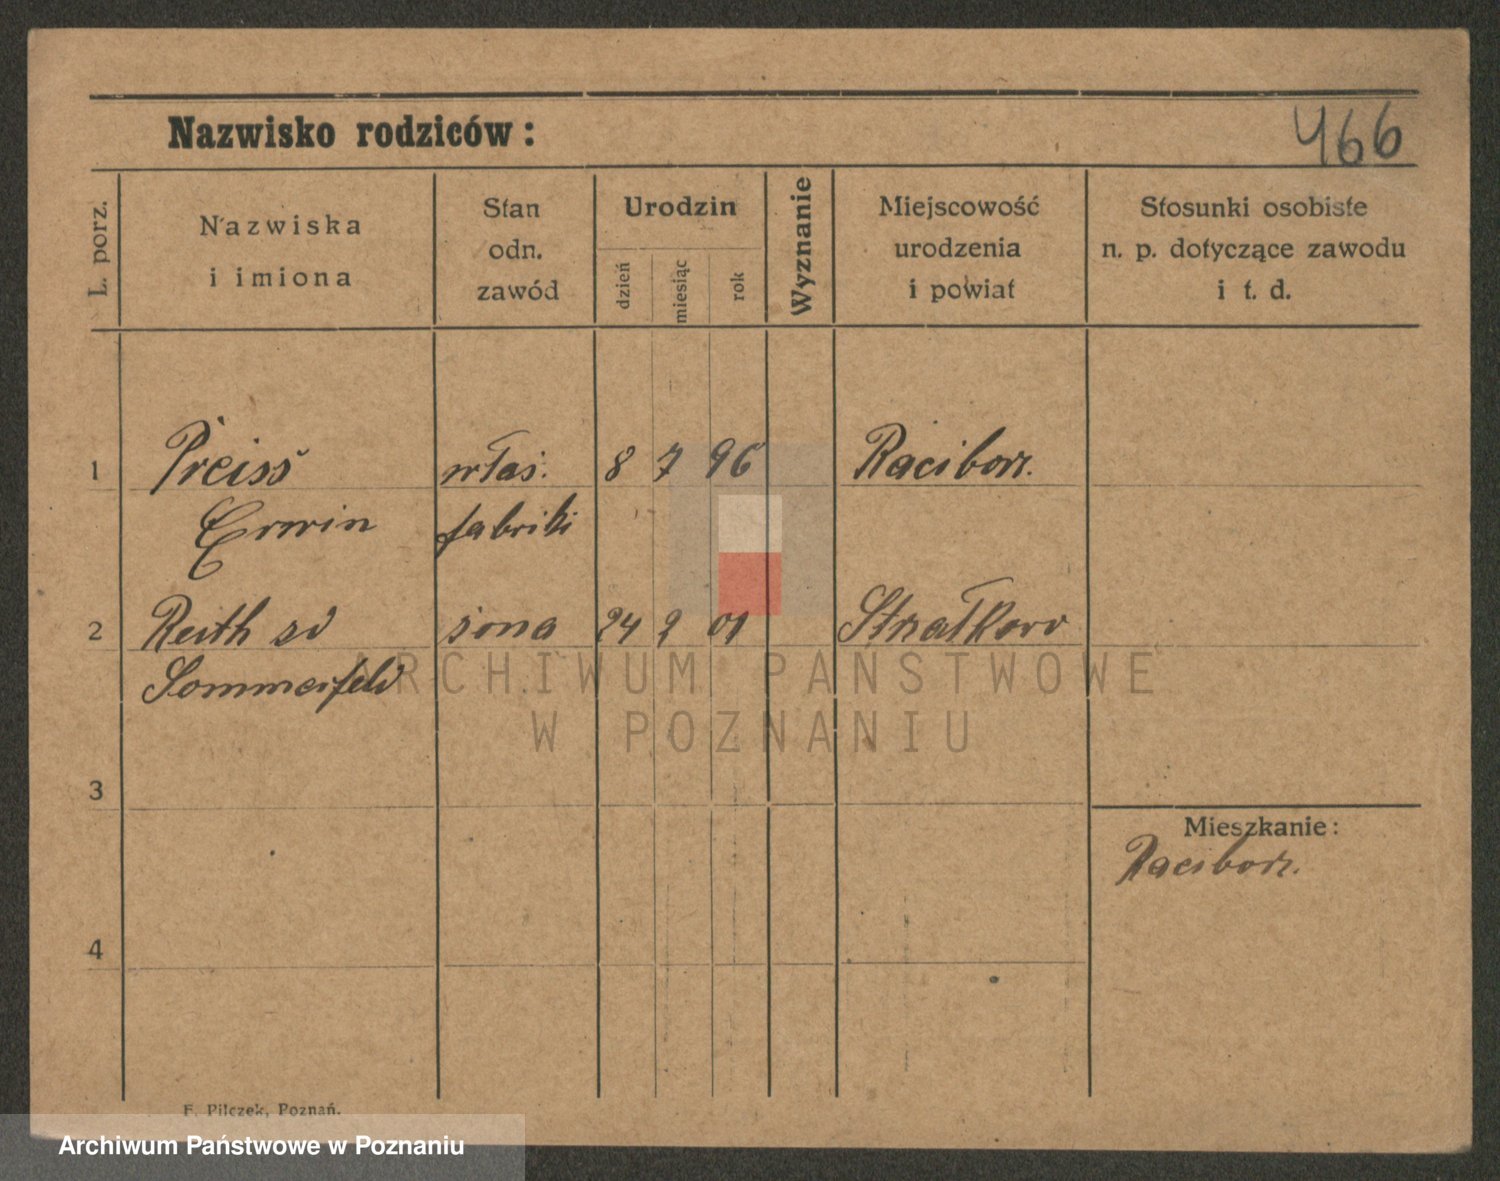 Nazwisko rodziców:
466
L. porz.
Nazwiska
i imiona
Stan
odn.
zawód
Urodzin
dzień
miesiąc
rok
Wyznanie
Miejscowość
urodzenia
i powiat
Stosunki osobiste
n. p. dotyczące zawodu
i t. d.
1 Preiss właś. 8 7 96 Raciborz.
Erwin fabriki
2 Reith sd żona 24 2 01 Strzałkow
Sommerfeld
ARCHIWUM PAŃSTWOWE
W POZNANIU
3
Mieszkanie:
Raciborz.
4
F. Pilczek, Poznań.
Archiwum Państwowe w Poznaniu